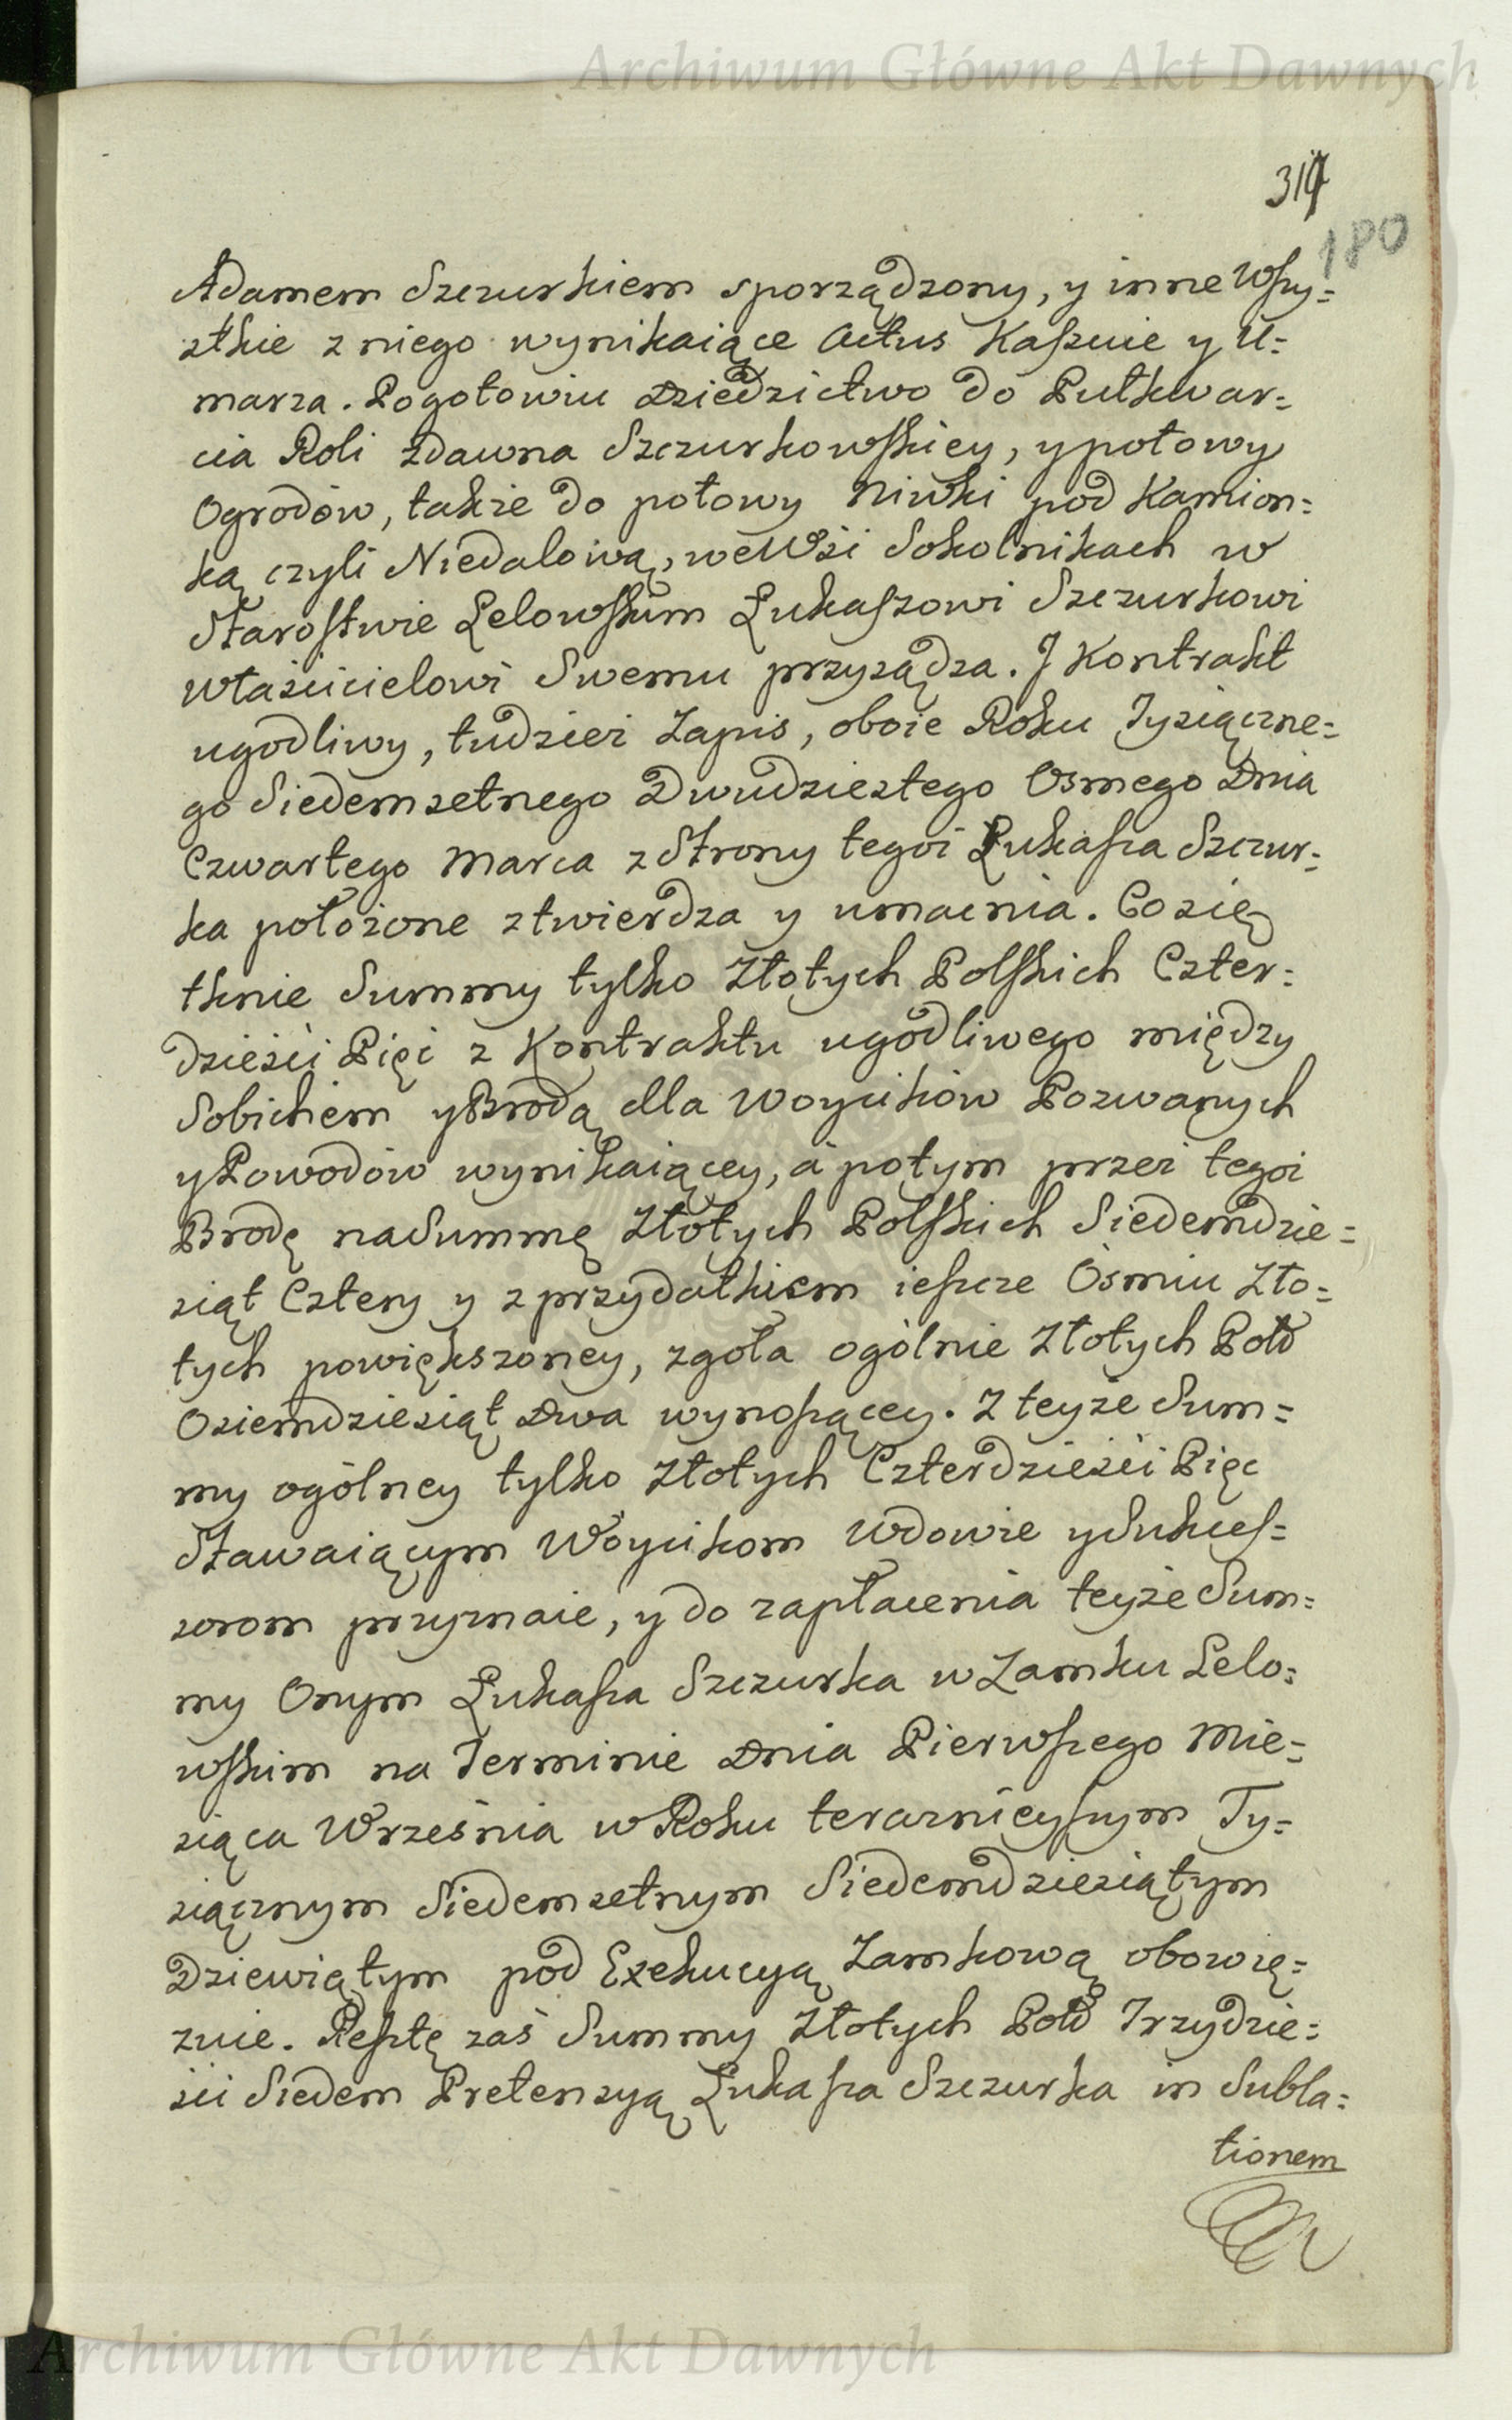 Archiwum Główne Akt Dawnych
317
180
Adamem Szczurkiem sporządzony, y inne Wszy=
stkie z niego wynikaiące Actus Kaszuie y U=
marza. Pogotowiu Dziedzictwo do Pułkwar=
cia Roli zdawna Szczurkowskiey, y połowy
Ogrodów, także do połowy Niwki pod Kamion=
ką czyli Niedalową, we Wsi Sokolnikach w
Starostwie Lelowskim Łukaszowi Szczurkowi
właścicielowi Swemu przysądza. J Kontrakt
ugodliwy, tudzież Zapis, oboie Roku Tysiączne=
go Siedemsetnego Dwudziestego Osmego Dnia
Czwartego Marca z Strony tegoż Łukasza Szczur=
ka położone ztwierdza y umacnia. Co się
tknie Summy tylko Złotych Polskich Czter=
dzieści Pięć z Kontraktu ugodliwego między
Sobichem y Brodą dla Woycików Pozwanych
y Powodów wynikaiącey, a potym przez tegoż
Brodę na Summę Złotych Polskich Siedemdzie=
siąt Cztery y z przydatkiem ieszcze Ośmiu Zło=
tych powiększoney, zgoła ogólnie Złotych Pol:
Osiemdziesiąt Dwa wynoszącey. Z teyże Sum=
my ogólney tylko Złotych Czterdzieści Pięc
Stawaiącym Woycikom Wdowie y Sukces=
sorom przyznaie, y do zapłacenia teyże Sum=
my Onym Łukasza Szczurka w Zamku Lelo=
wskim na Terminie Dnia Pierwszego Mie=
siąca Września w Roku teraznieyszym Ty=
siącznym Siedemsetnym Siedemdziesiątym
Dziewiątym pod Exekucyą Zamkową obowię=
zuie. Resztę zaś Summy Złotych Pol: Trzydzie=
ści Siedem Pretensyą Łukasza Szczurka in Subla=
tionem
Archiwum Główne Akt Dawnych